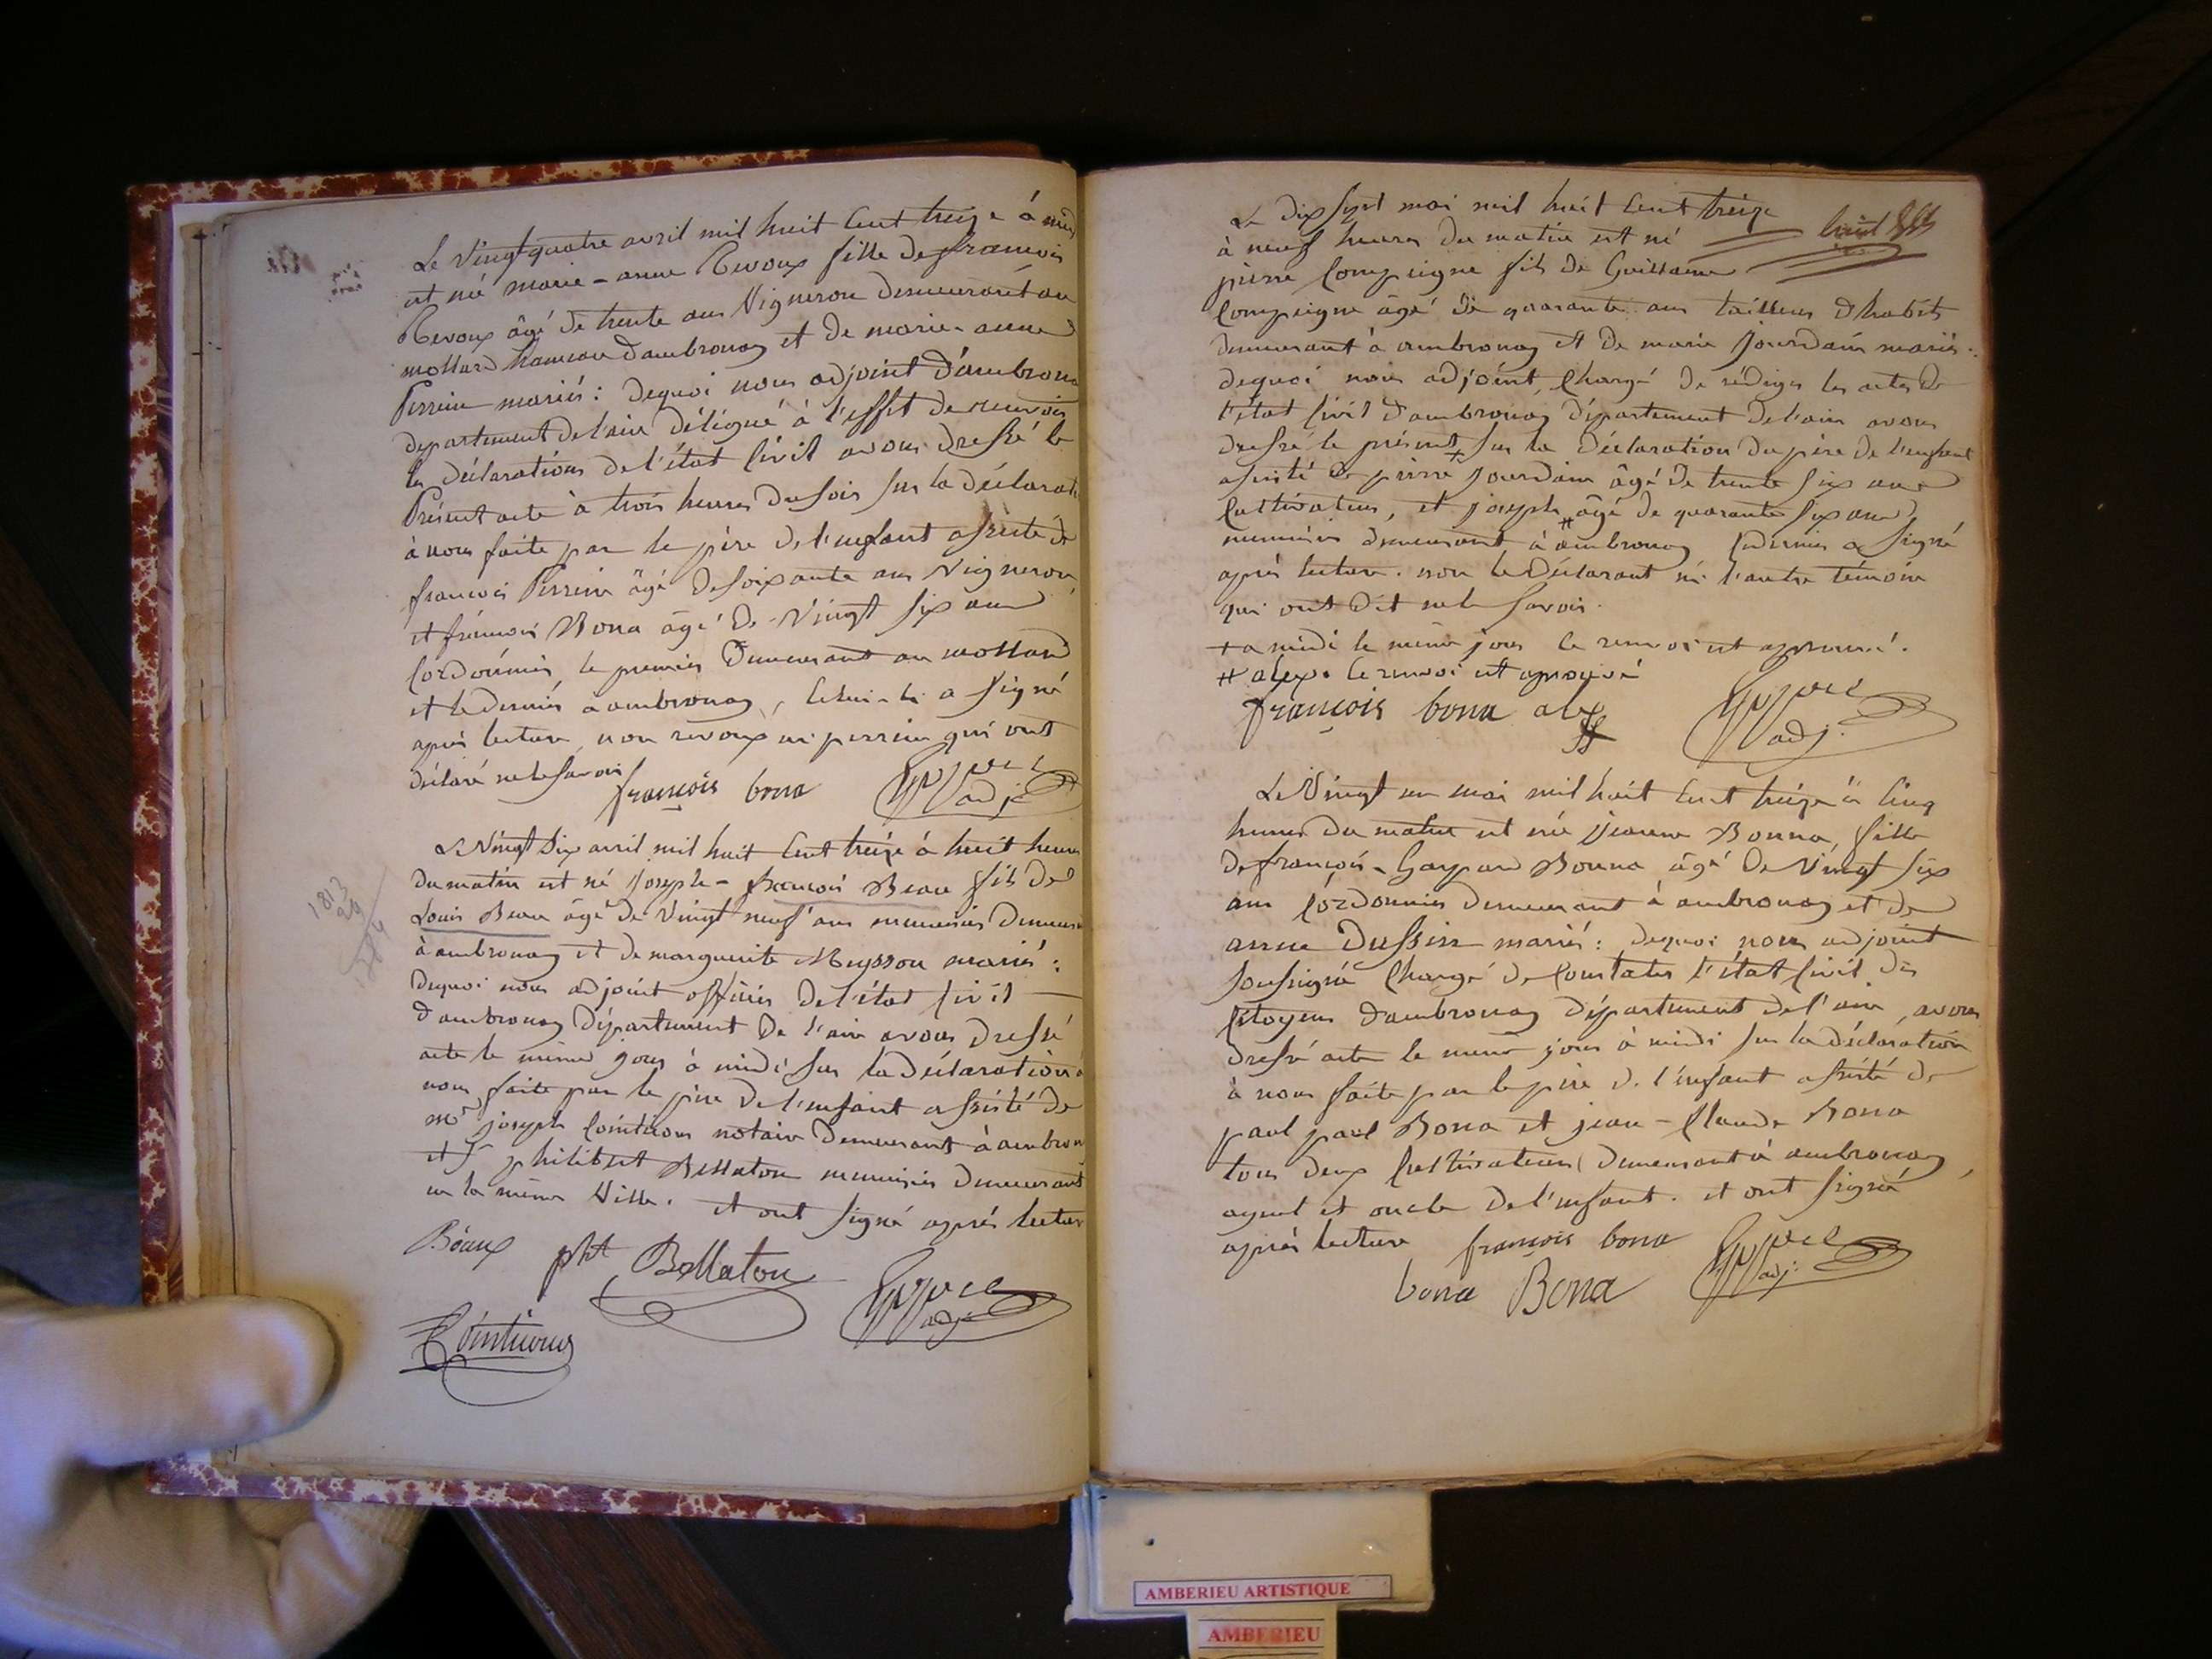 Le Vingt quatre avril mil huit Cent treize à midi
est née marie-anne Revoux fille de francois
Revoux âgé de trente ans Vigneron demeurant au
mollard hameau d'ambronay et de marie-anne
Perrin mariés : dequoi nous adjoint d'ambronay
departement de l'ain délégué à l'effet de recevoir
les déclarations de l'état Civil avons dressé le
Présent acte à trois heures du soir sur la déclaration
à nous faite par le père de l'enfant assisté de
francois Perrin âgé de soixante ans Vigneron
et francois Bona âgé de Vingt six ans
Cordonnier, le premier demeurant au mollard
et le dernier à ambronay, Celui-ci a signé
après lecture, non revoux ni perrin qui ont
déclaré ne le savoir
françois bona
adj.
Le Vingt Six avril mil huit Cent treize à huit heures
du matin est né Joseph-francois Beau fils de
1813
29
584
Louis Beau âgé de Vingt neuf ans menuisier demeurant
à ambronay et de marguerite Meysson mariés :
dequoi nous adjoint officier de l'état Civil
d'ambronay département de l'ain avons dressé
acte le même jour à midi sur la déclaration à
nous faite par le père de l'enfant assisté de
mr joseph Cointicour notaire demeurant à ambronay
et Sr philibert Bellaton menuisier demeurant
en la même Ville. et ont signé après lecture
Béaux pht Bellaton
adj.
Cointicour
Le dix sept mai mil huit Cent treize
à neuf heures du matin est né
pierre Compeigne fils de Guillaume
Compeigne âgé de quarante ans tailleur d'habits
demeurant à ambronay et de marie Jourdain mariés.
dequoi nous adjoint Chargé de rédiger les actes de
l'état Civil d'ambronay département de l'ain avons
dressé le présent + sur la déclaration du père de l'enfant
assisté de pierre Jourdain âgé de trente six ans
Cultivateur, et joseph # âgé de quarante six ans
menuisier demeurant à ambronay Ce dernier a signé
après lecture. non le déclarant ni l'autre témoin
qui ont dit ne le savoir.
+ a midi le même jour le renvoi est approuvé.
# alex. le renvoi est aprouvé
françois bona alex
adj.
Le Vingt un mai mil huit Cent treize à Cinq
heures du matin est née jeanne Bonna, fille
de françois-Gaspard Bonna âgé de Vingt six
ans Cordonnier demeurant à ambronay et de
anne Dussin mariés : dequoi nous adjoint
soussigné Chargé de Constater l'état Civil des
Citoyens d'ambronay département de l'ain, avons
dressé acte le même jour à midi sur la déclaration
à nous faite par le père de l'enfant assisté de
paul paul Bona et jean-Claude Bona
tous deux Cultivateurs demeurant à ambronay,
ayeul et oncle de l'enfant. et ont signé
après lecture françois bona
adj.
bona Bona
AMBERIEU ARTISTIQUE
AMBERIEU